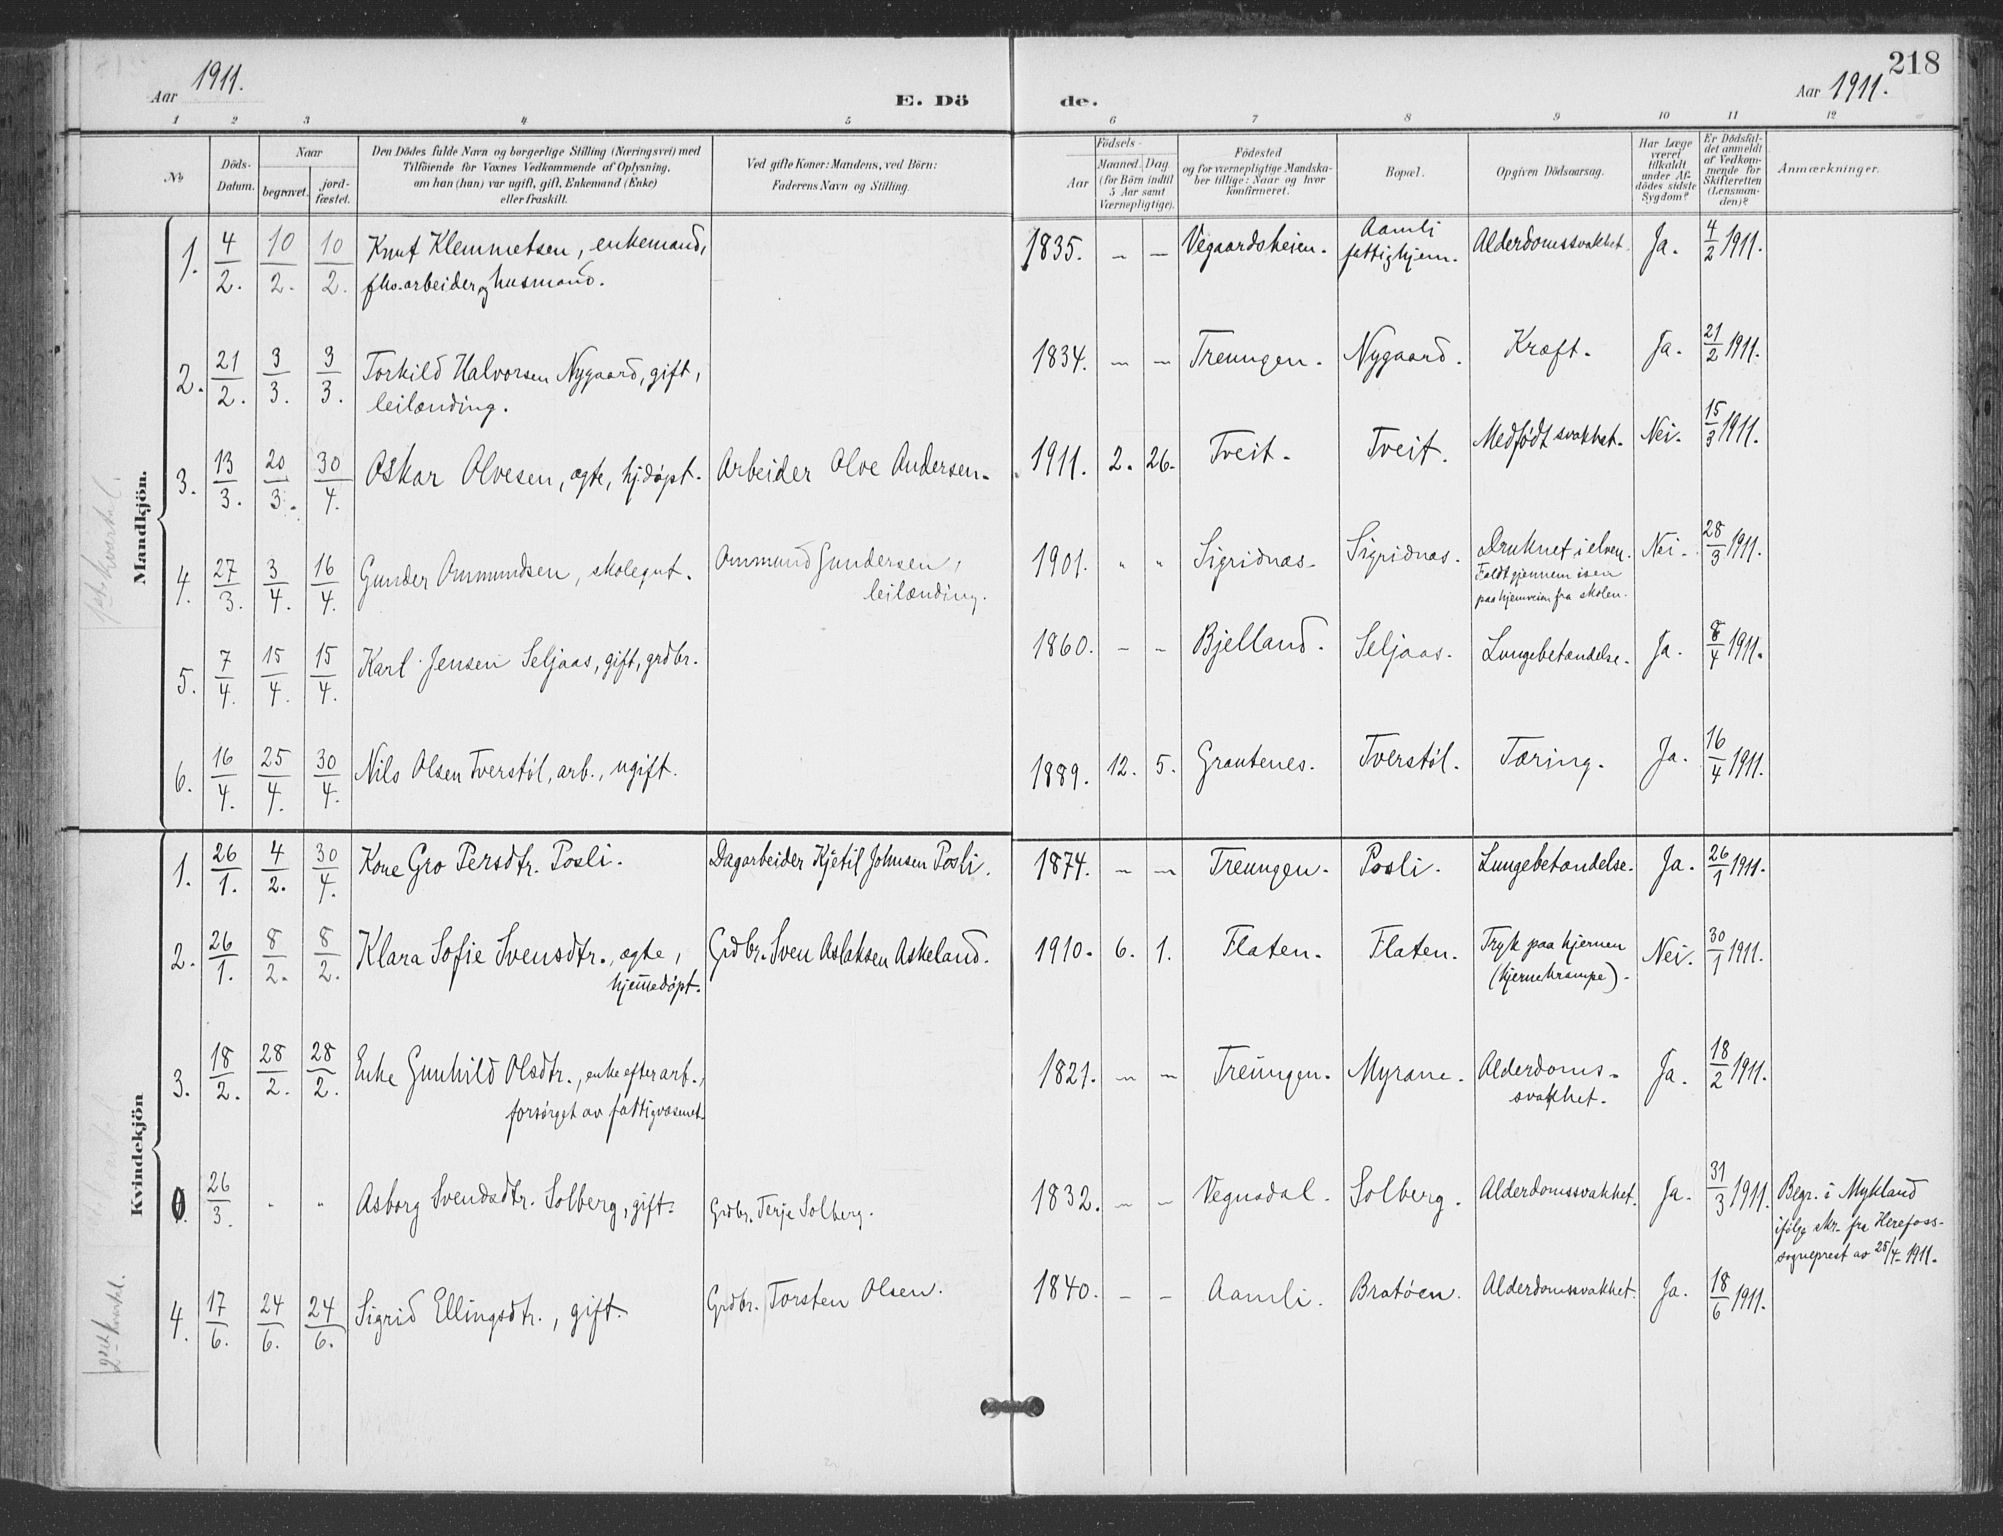 Aar 1911.
E. Dö
de.
Aar 1911.
218
1 2 3 4 5 6 7 8 9 10 11 12
No
Döds-
Datum.
Naar
begravet.
jord-
fæstet.
Den Dödes fulde Navn og borgerlige Stilling (Næringsvei) med
Tilföiende for Voxnes Vedkommende af Oplysning,
om han (hun) var ugift, gift, Enkemand (Enke)
eller fraskilt.
Ved gifte Koner: Mandens, ved Börn:
Faderens Navn og Stilling.
Födsels-
Aar
Maaned. Dag.
(for Börn indtil
5 Aar samt
Værnepligtige).
Födested
og for værnepligtige Mandska-
ber tillige: Naar og hvor
konfirmeret.
Bopæl.
Opgiven Dödsaarsag.
Har Læge
været
tilkaldt
under Af-
dödes sidste
Sygdom?
Er Dödsfal-
det anmeldt
af Vedkom-
mende for
Skifteretten
(Lensman-
den)?
Anmærkninger.
Mandkjön.
1. 4/2. 10/2. 10/2. Knut Klemmetsen, enkemand, 1835. – – Vegaardsheien. Aamli Alderdomssvakhet. Ja. 4/2 1911.
fhv. arbeider og husmand. fattighjem.
2. 21/2. 3/3. 3/3. Torkild Halvorsen Nygaard, gift, 1834. – – Treungen. Nygaard. Kræft. Ja. 21/2 1911.
leilænding.
3. 13/3. 20/3. 30/4. Oskar Olvesen, ægte, hj.døpt. Arbeider Olve Andersen. 1911. 2. 26. Tveit. Tveit. Medfødt svakhet. Nei. 15/3 1911.
4. 27/3. 3/4. 16/4. Gunder Ommundsen, skolegut. Ommund Gundersen, 1901. " " Sigridnæs. Sigridnæs. Druknet i elven. Nei. 28/3 1911.
leilænding. Faldt gjennem isen
paa hjemveien fra skolen.
5. 7/4. 15/4. 15/4. Karl Jensen Seljaas, gift, grdbr. 1860. – – Bjelland. Seljaas. Lungebetændelse. Ja. 8/4 1911.
6. 16/4. 25/4. 30/4. Nils Olsen Tverstøl, arb., ugift. 1889. 12. 5. Grautenes. Tverstøl. Tæring. Ja. 16/4 1911.
Kvindekjön
1. 26/1. 4/2. 30/4. Kone Gro Persdtr. Posli. Dagarbeider Kjetil Johnsen Posli. 1874. – – Treungen. Posli. Lungebetændelse. Ja. 26/1 1911.
2. 26/1. 8/2. 8/2. Klara Sofie Svensdtr., ægte, Grdbr. Sven Aslaksen Askeland. 1910. 6. 1. Flaten. Flaten. Tryk paa hjernen Nei. 30/1 1911.
hjemmedøpt. (hjernekrampe).
3. 18/2. 28/2. 28/2. Enke Gunhild Olsdtr., enke efter arb., 1821. – – Treungen. Myrane. Alderdoms- Ja. 18/2 1911.
forsørget av fattigvæsenet. svakhet.
0. 26/3. " " Asborg Svendsdtr. Solberg, gift. Grdbr. Terje Solberg. 1832. – – Vegusdal. Solberg. Alderdomssvakhet. Ja. 31/3 1911. Begr. i Mykland
ifølge skr. fra Herefoss-
sogneprest av 25/4 1911.
4. 17/6. 24/6. 24/6. Sigrid Ellingsdtr., gift. Grdbr. Torsten Olsen. 1840. – – Aamli. Bratøen. Alderdomssvakhet. Ja. 18/6 1911.